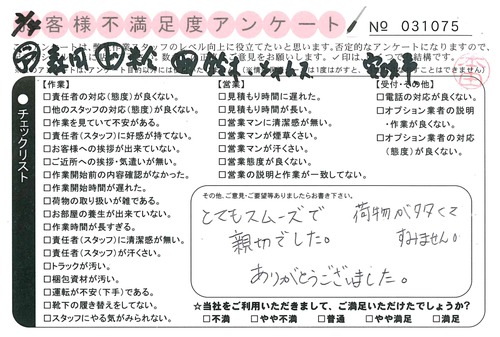 お客様不満足度アンケート
No 031075
【作業】
□責任者の対応(態度)が良くない。
□他のスタッフの対応(態度)が良くない。
□作業を見ていて不安がある。
□責任者(スタッフ)に好感が持てない。
□お客様への挨拶が出来ていない。
□ご近所への挨拶・気遣いが無い。
□作業開始前の内容確認がなかった。
□作業開始時間が遅れた。
□荷物の取り扱いが雑である。
□お部屋の養生が出来ていない。
□作業時間が長すぎる。
□責任者(スタッフ)に清潔感が無い。
□責任者(スタッフ)が汗くさい。
□トラックが汚い。
□梱包資材が汚い。
□運転が不安(下手)である。
□靴下の履き替えをしてない。
□スタッフにやる気がみられない。
【営業】
□見積もり時間に遅れた。
□見積もり時間が長い。
□営業マンに清潔感が無い。
□営業マンが煙草くさい。
□営業マンが汗くさい。
□営業態度が良くない。
□営業の説明と作業が一致してない。
【受付・その他】
□電話の対応が良くない。
□オプション業者の説明
・作業が良くない。
□オプション業者の対応
(態度)が良くない。
チェックリスト
その他、ご意見・ご要望等ありましたらお書き下さい。
とてもスムーズで
親切でした。
荷物が多くて
すみません。
ありがとうございました。
☆当社をご利用いただきまして、ご満足いただけたでしょうか?
□不満 □やや不満 □普通 □やや満足 □満足